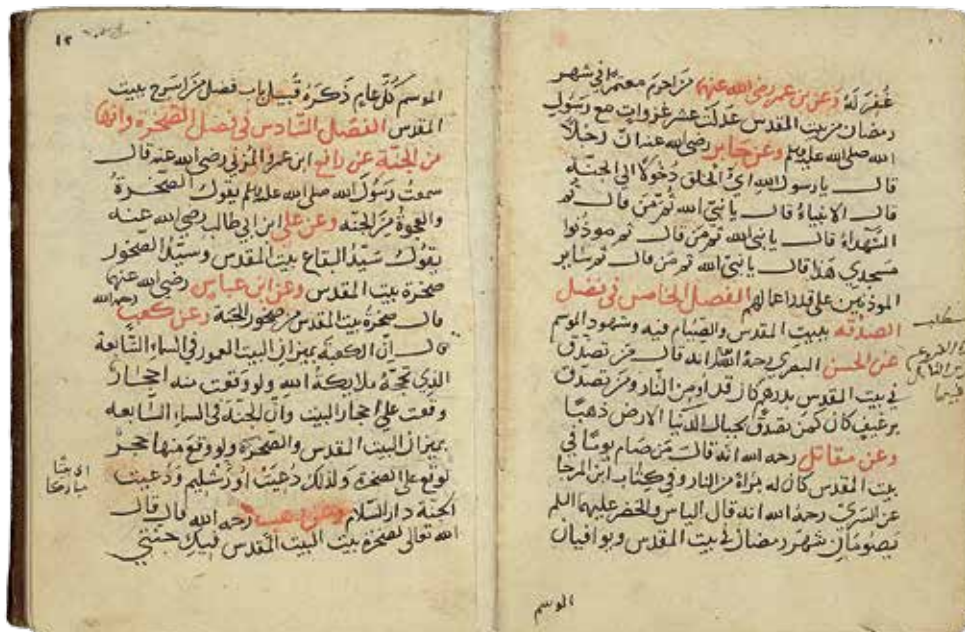 غُفِرَ لَهُ وَعن بن عمر رضى الله عنهما مَن احرم معتمرًا في شهر
رمضان من بيت المقدس عدلت عشر غزوات مع رسول
الله صلى الله عليه وسلم وعن جابر رضى الله عنه ان رجلاً
قال يا رسول الله اىّ الخلق دُخولًا الى الجنّة
قال الانبياءُ قال يا نبىّ الله ثم مَن قال ثم
الشهداءُ قال يا نبىّ الله ثم مَن قال ثم موذنوا
مسجدي هذا قال يا نبىّ الله ثم مَن قال ثم سَاير
الموذنين على قدر اعمالهم الفصل الخامس في فضل
الصدقه ببيت المقدس والصيام فيه وشهود الموسم
عن الحسن البصري رحمة الله انه قال مَن تصدق
في بيت المقدس بدرهم كان فداوه من النار ومَن تصدق
برغيف كان كمن تصدق بجبال الدنيا الارض ذهبًا
وعن مقاتل رحمه الله انه قال مَن صام يومًا في
بيت المقدس كان له براة من النار وفي كتاب ابن المرجا
عن السرىّ رحمة الله انه قال الياس والخضر عليهما السلم
يصومان شهر رمضان في بيت المقدس ويوافيان
الموسم
١٢
الموسم كُلَّ عام ذكرهُ قُبيل باب فضل مَن اسرج ببيت
المقدس الفصل السّادس في فضل الصّخرة وانها
من الجنّة عن رافع ابن عمرو المُزني رضى الله عنه قال
سمعتُ رسول الله صلى الله عليه وسلم يقول الصّخرةُ
والعجوةُ من الجنّه وعن على ابن ابى طالب رضى الله عنه
يقول سَيّدُ البقاع بيت المقدس وسيّد الصّخور
صخرة بيت المقدس وعن ابن عباس رضي الله عنهما
قال صخرةُ بيت المقدس من صخور الجنة وعن كعب رحمه الله
قال انّ الكعبة بميزان البيت المعمور في السماء السّابعة
الذي تحجّهُ ملايكةُ الله ولو وقعت منه احجارٌ
وقعت على احجار البيت وانّ الجنّة في السماء السّابعه
بميزان البيت المقدس والصّخرة ولو وقع منها حجرٌ
لوقع على الصّخرة ولذلك دُعيَتْ اورشليم ودُعيت
الجنّة دار السّلام وعن كعب رحمه الله قال قال
الله تعالى لصخرة بيت البيت المقدس فيكِ جنّتي